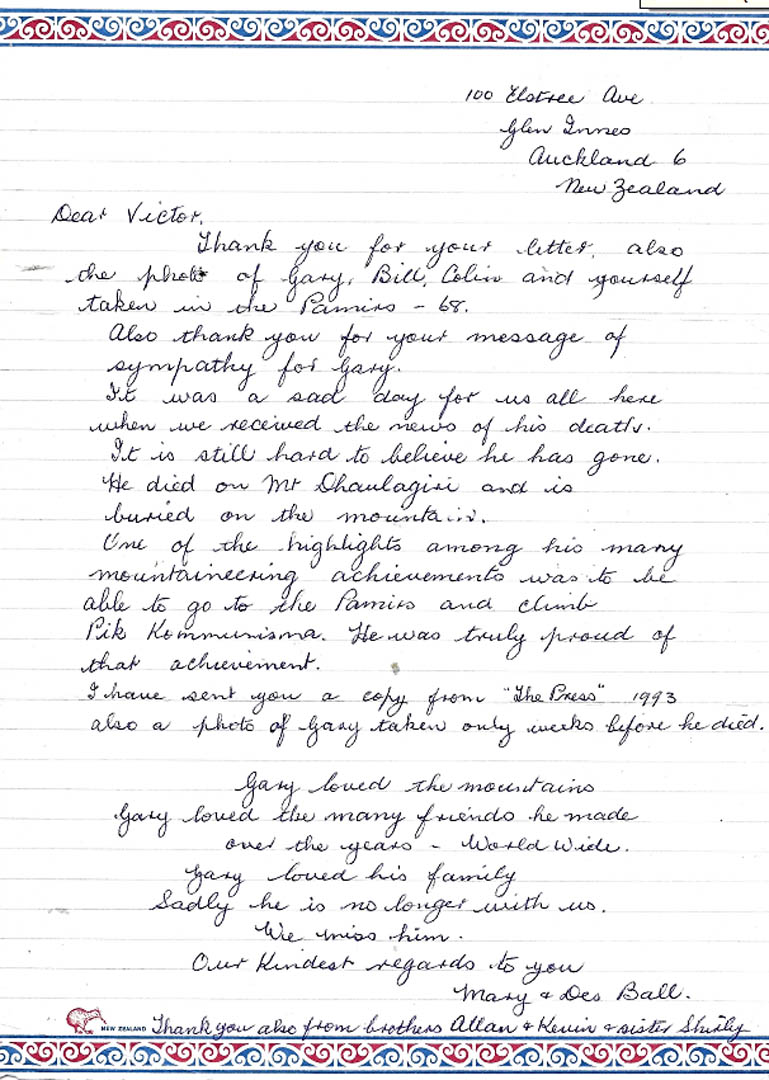 100 Elstree Ave
Glen Innes
Auckland 6
New Zealand
Dear Victor,
Thank you for your letter, also
the photo of Gary, Bill, Colin and yourself
taken in the Pamirs - 68.
Also thank you for your message of
sympathy for Gary.
It was a sad day for us all here
when we received the news of his death.
It is still hard to believe he has gone.
He died on Mt Dhaulagiri and is
buried on the mountain.
One of the highlights among his many
mountaineering achievements was to be
able to go to the Pamirs and climb
Pik Kommunisma. He was truly proud of
that achievement.
I have sent you a copy from "The Press" 1993
also a photo of Gary taken only weeks before he died.
Gary loved the mountains
Gary loved the many friends he made
over the years - World Wide.
Gary loved his family
Sadly he is no longer with us.
We miss him.
Our Kindest regards to you
Mary & Des Ball.
NEW ZEALAND Thank you also from brothers Allan & Kevin & sister Shirly